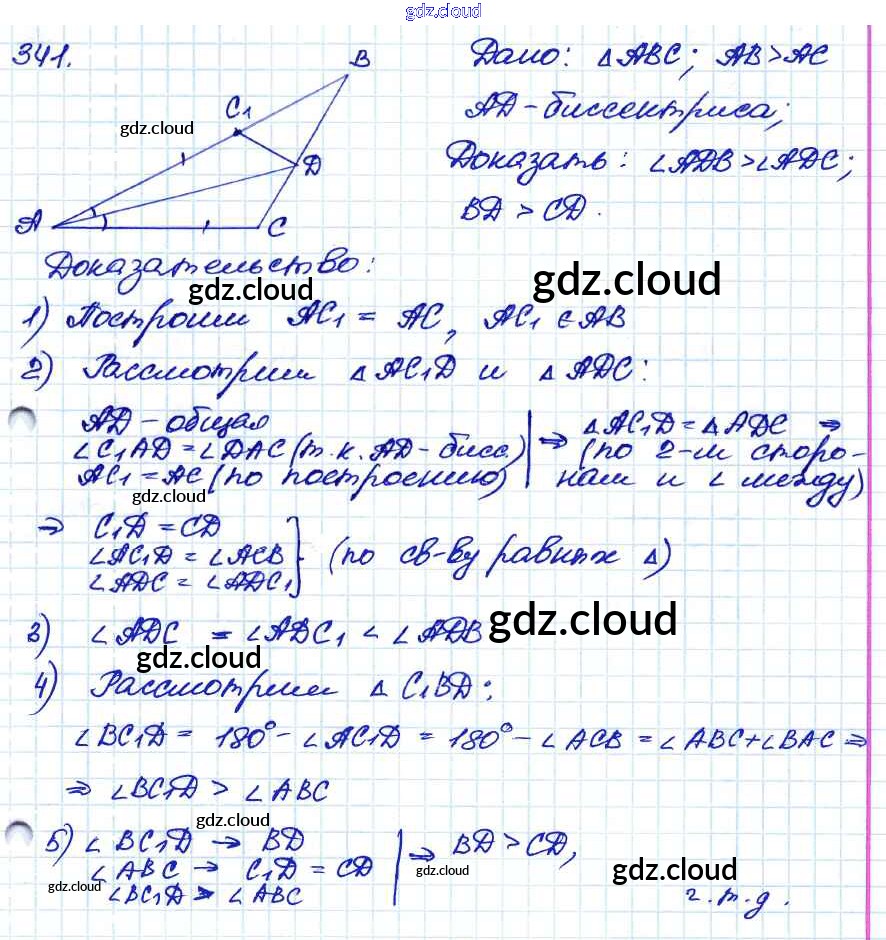 gdz.cloud
341.
B
C₁
gdz.cloud
D
A
C
Дано: △ABC; AB>AC
AD-биссектриса;
Доказать: ∠ADB>∠ADC;
BD > CD.
Доказательство:
gdz.cloud
gdz.cloud
1) Построим AC₁ = AC, AC₁ ∈ AB
2) Рассмотрим △AC₁D и △ADC:
AD-общая
∠C₁AD=∠DAC (т.к. AD-бисс.)
AC₁=AC (по построению)
⇒ △AC₁D=△ADC ⇒
(по 2-м сторо-
нам и ∠ между)
gdz.cloud
⇒ C₁D = CD
∠AC₁D = ∠ACB
∠ADC = ∠ADC₁
(по св-ву равных △)
3) ∠ADC = ∠ADC₁ < ∠ADB
gdz.cloud
gdz.cloud
4) Рассмотрим △C₁BD:
∠BC₁D = 180°-∠AC₁D = 180°-∠ACB = ∠ABC+∠BAC ⇒
⇒ ∠BC₁D > ∠ABC
gdz.cloud
gdz.cloud
5) ∠BC₁D → BD
∠ABC → C₁D = CD
∠BC₁D > ∠ABC
⇒ BD > CD,
gdz.cloud
gdz.cloud
gdz.cloud
ч.т.д.